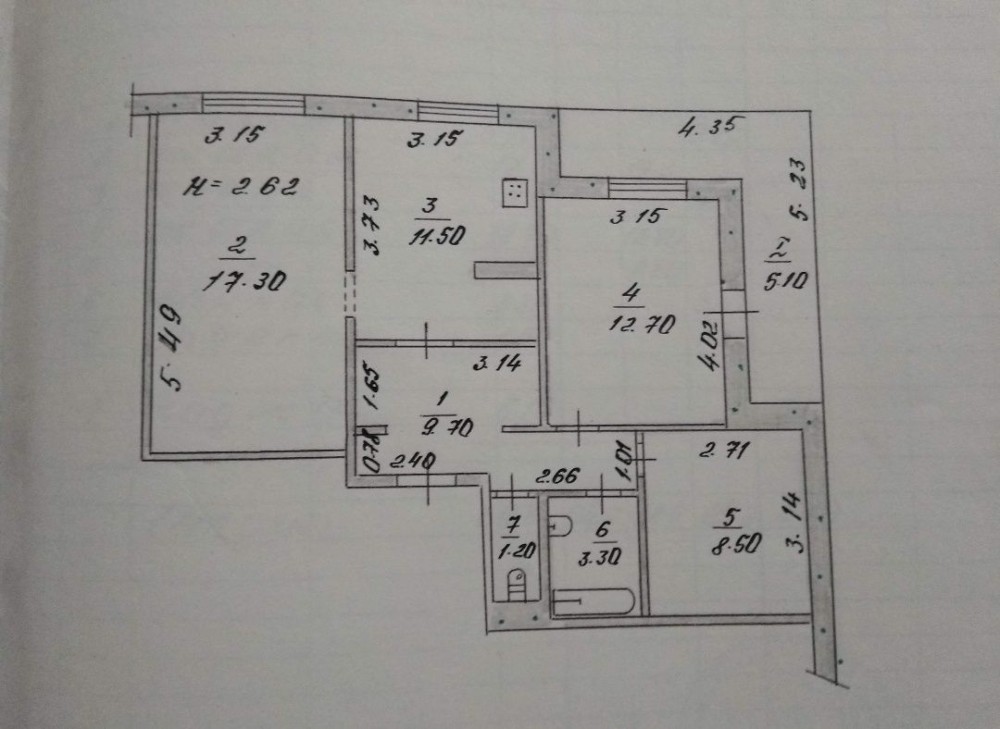 3.15
H=2.62
2
17.30
5.49
3.15
3.73
3
11.50
4.35
5.23
I
5.10
3.15
4
12.70
4.02
3.14
1.65
1
9.70
0.78
2.40
2.66
1.01
2.71
5
8.50
3.14
7
1.20
6
3.30